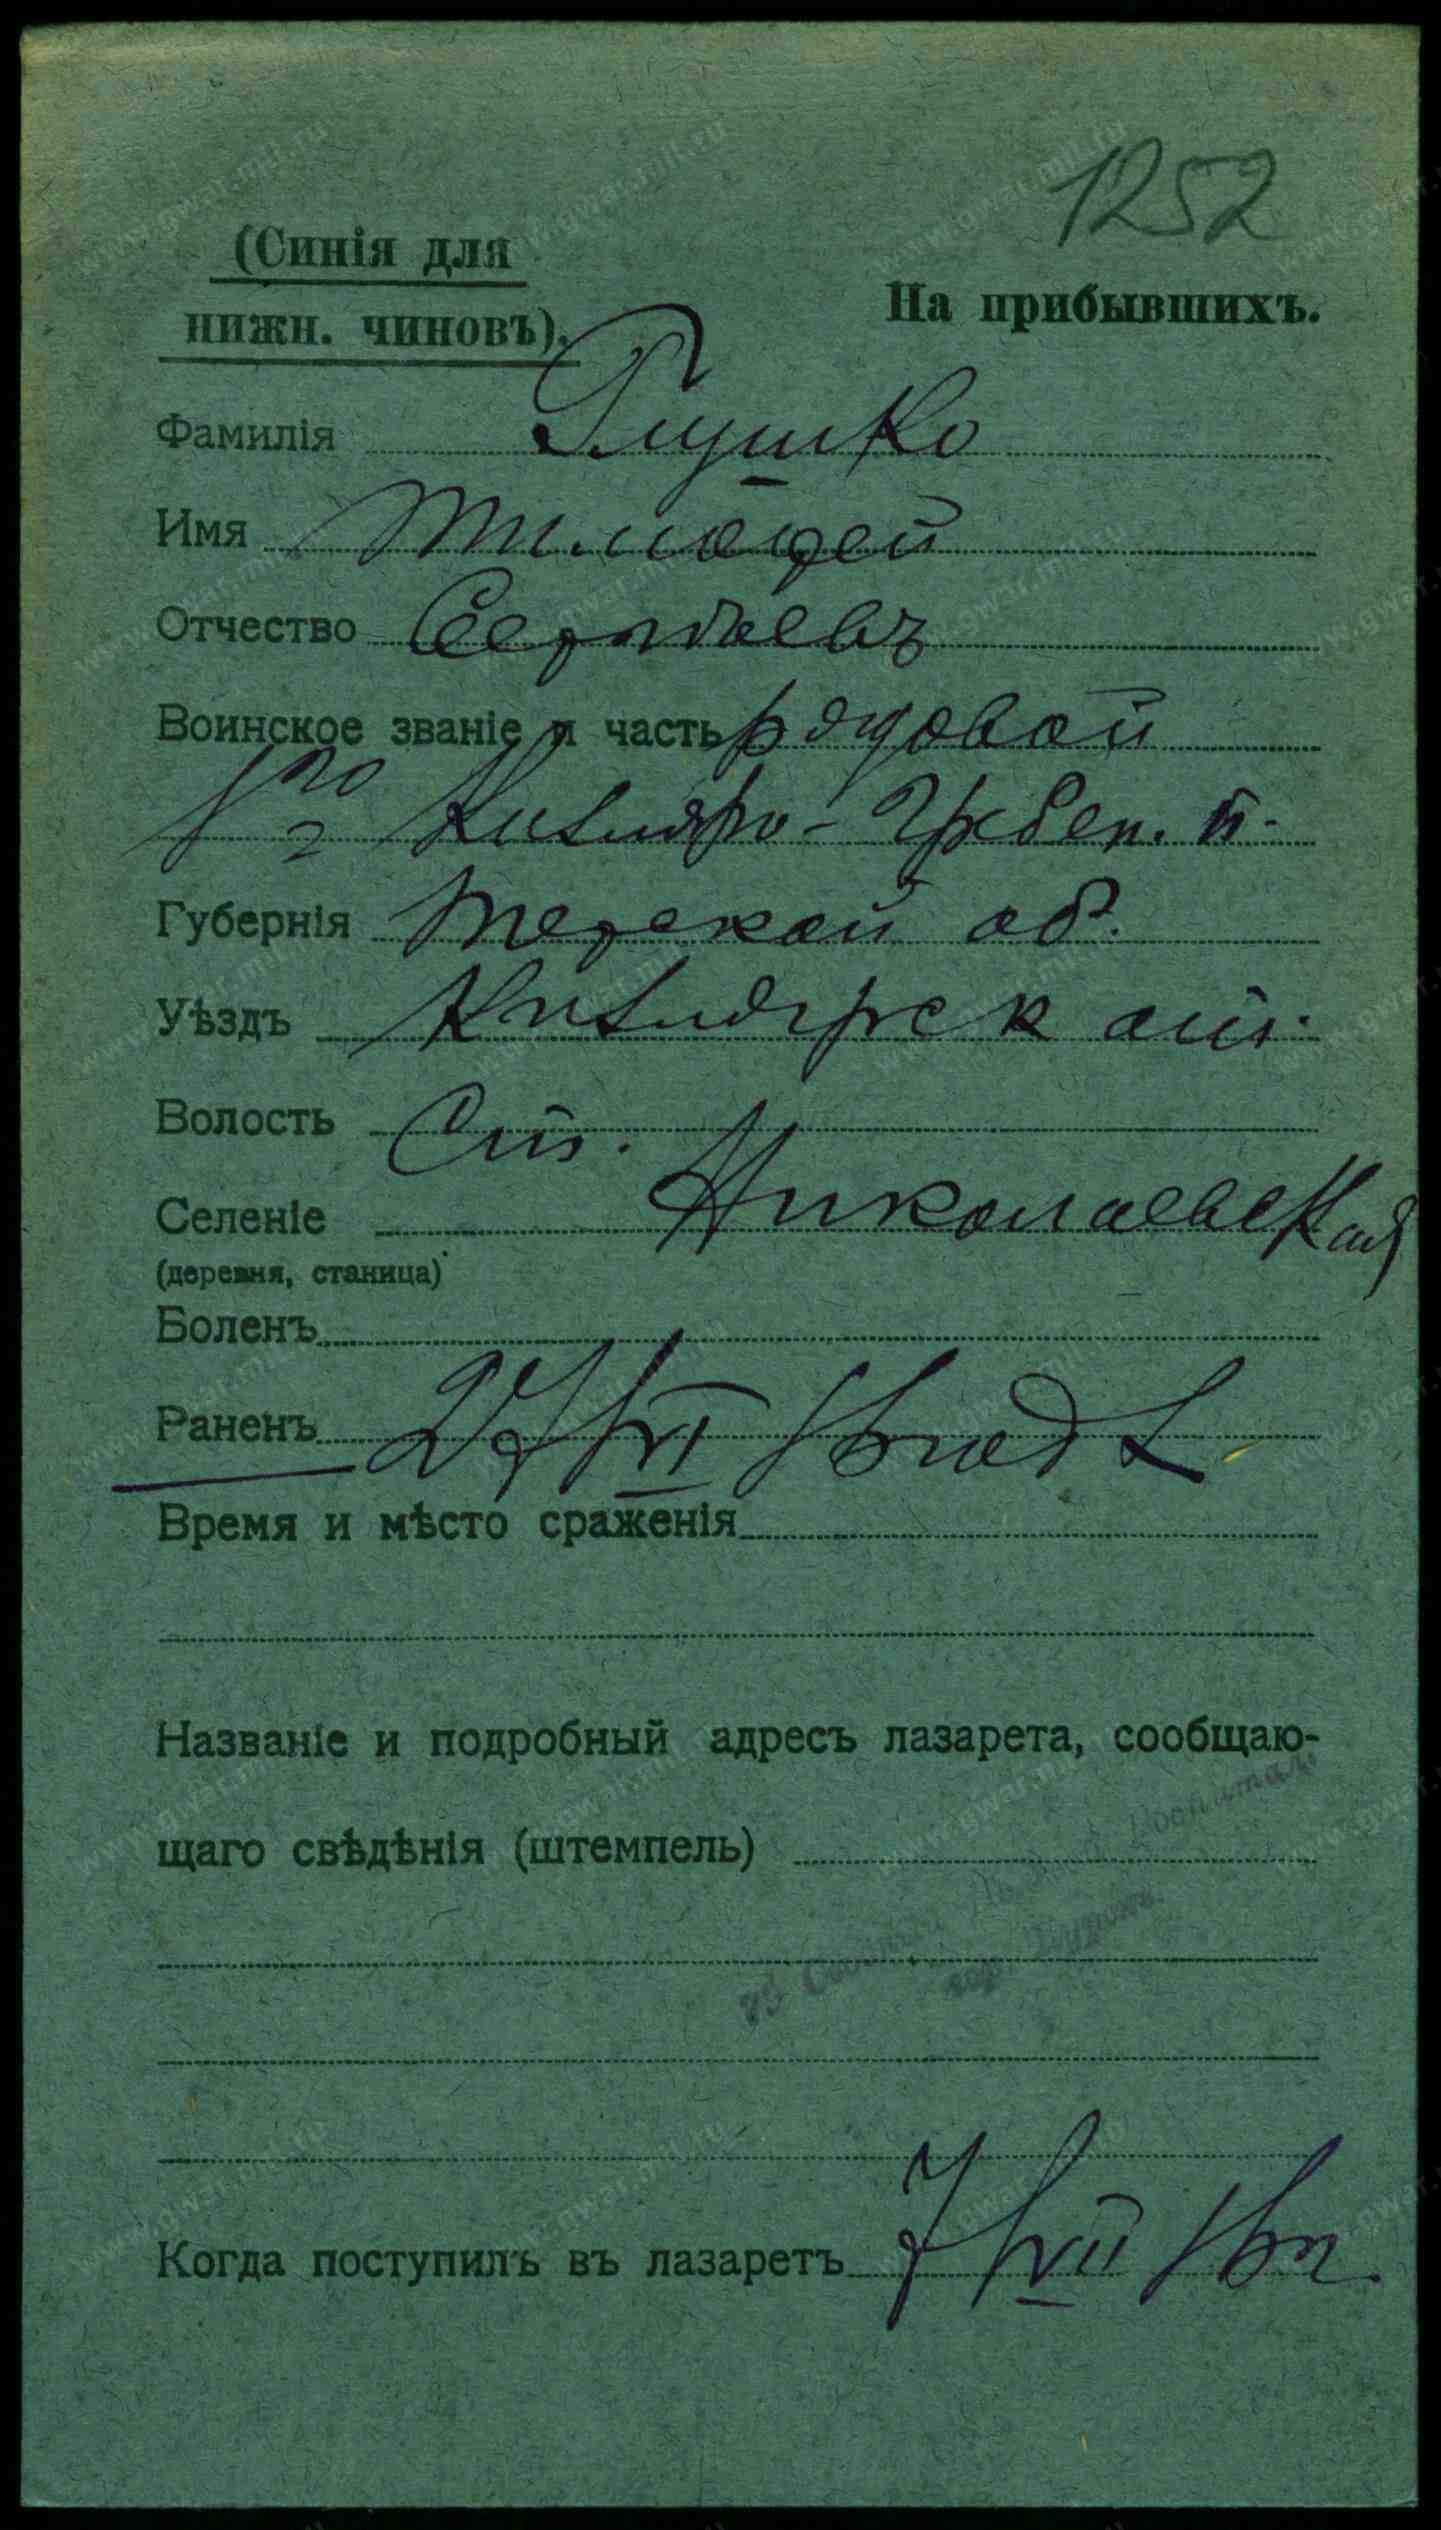 1252
(Синія для
нижн. чиновъ).
На прибывшихъ.
Фамилія Глушко
Имя Тимофей
Отчество Сергѣевъ
Воинское званіе и часть рядовой
1го Кизляро-Гребен. п.
Губернія Терской об.
Уѣздъ Кизлярск от.
Волость Ст.
Селеніе Николаевская
(деревня, станица)
Боленъ
Раненъ 27/VI
Время и мѣсто сраженія
Названіе и подробный адресъ лазарета, сообщаю-
щаго свѣдѣнія (штемпель)
Госпиталь
Когда поступилъ въ лазаретъ 7/VII
www.gwar.mil.ru